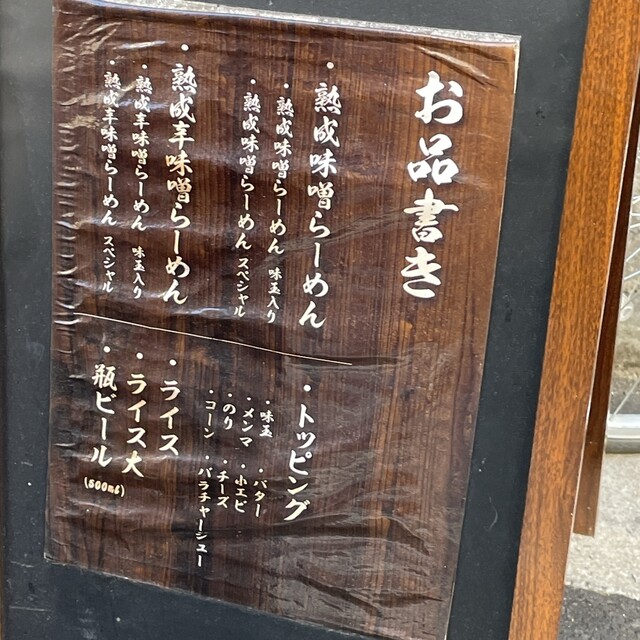 お品書き
・熟成味噌らーめん
・熟成味噌らーめん 味玉入り
・熟成味噌らーめん スペシャル
・熟成辛味噌らーめん
・熟成辛味噌らーめん 味玉入り
・熟成辛味噌らーめん スペシャル
・トッピング
・味玉 ・バター
・メンマ ・小エビ
・のり ・チーズ
・コーン ・バラチャーシュー
・ライス
・ライス大
・瓶ビール (500ml)